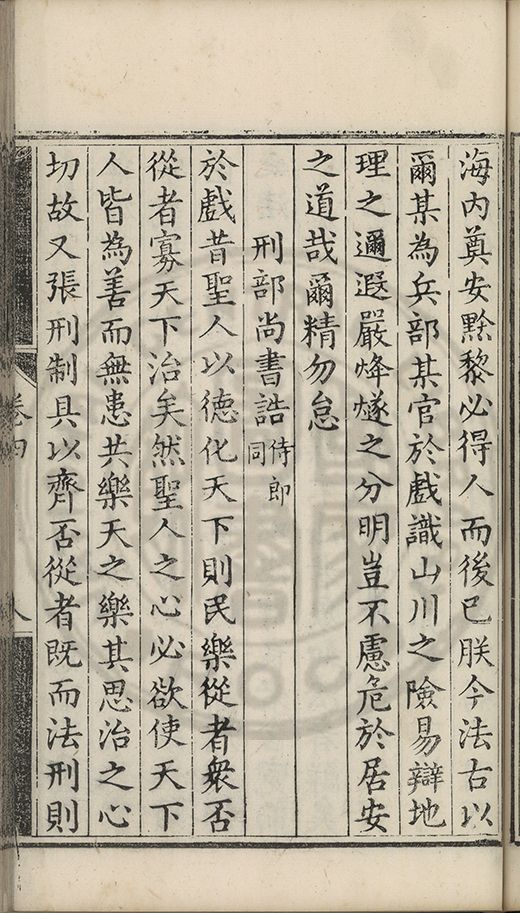 海内奠安黔黎必得人而後已朕今法古以
爾某為兵部某官於戲識山川之險易辯地
理之邇遐嚴烽燧之分明豈不慮危於居安
之道哉爾精勿怠
刑部尚書誥侍郎同
於戲昔聖人以德化天下則民樂從者衆否
從者寡天下治矣然聖人之心必欲使天下
人皆為善而無患共樂天之樂其思治之心
切故又張刑制具以齊否從者既而法刑則
卷四
八